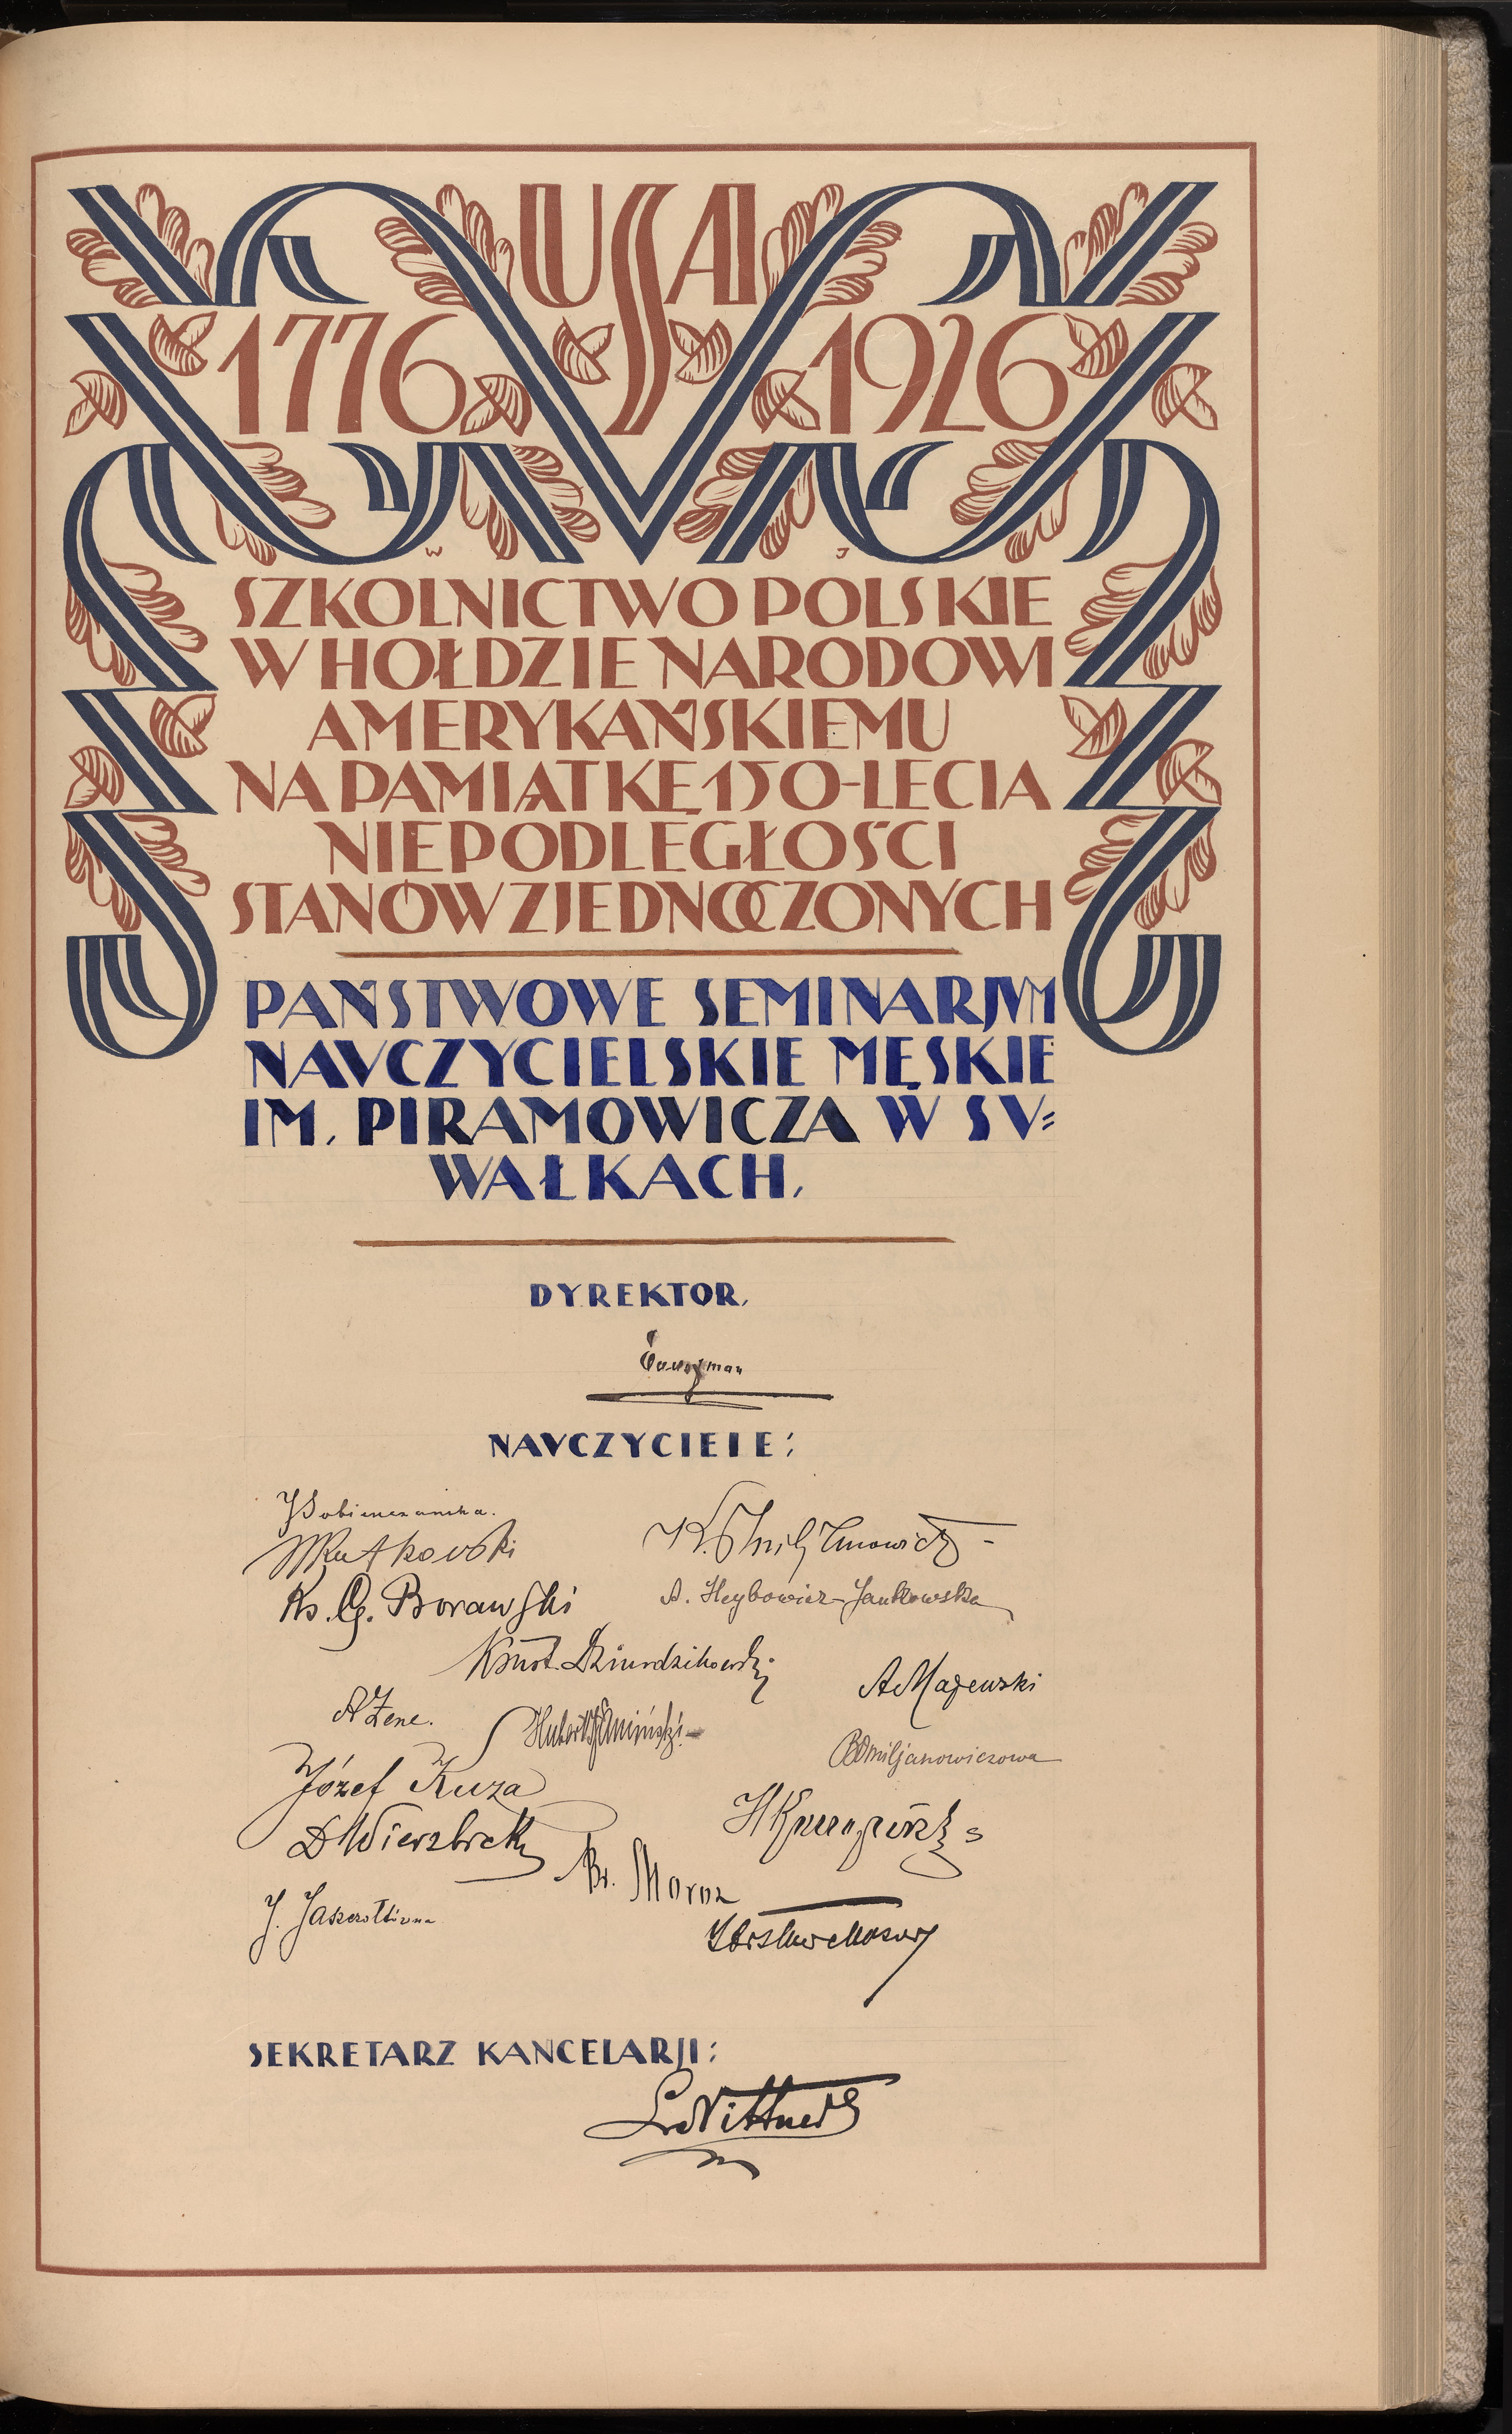 USA
1776 1926
W J
SZKOLNICTWO POLSKIE
W HOŁDZIE NARODOWI
AMERYKAŃSKIEMU
NA PAMIĄTKĘ 150-LECIA
NIEPODLEGŁOŚCI
STANÓW ZJEDNOCZONYCH
PAŃSTWOWE SEMINARJVM
NAVCZYCIELSKIE MĘSKIE
IM. PIRAMOWICZA W SV=
WAŁKACH.
DYREKTOR.
NAVCZYCIELE:
Rutkowski
Ks. G. Borawski
A. Heybowicz-Jankowska
Konst. Dziurdzikowski
A Majewski
A Zene.
Hubert
B Omiljanowiczowa
Józef Kuza
D Wierzbicki
Br. Moroz
J.
SEKRETARZ KANCELARJI:
L Wittner